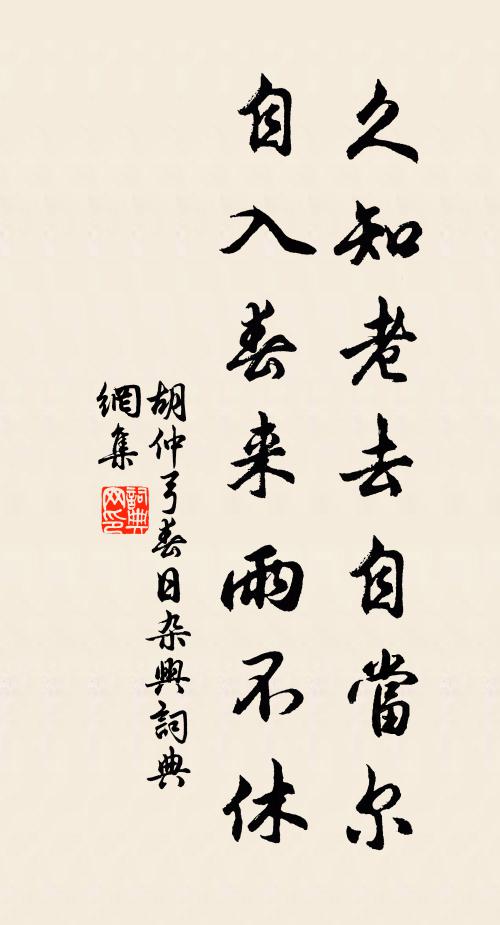 久知老去自當尔
自入春来雨不休
胡仲弓春日杂興詞典
網集
詞典
网印